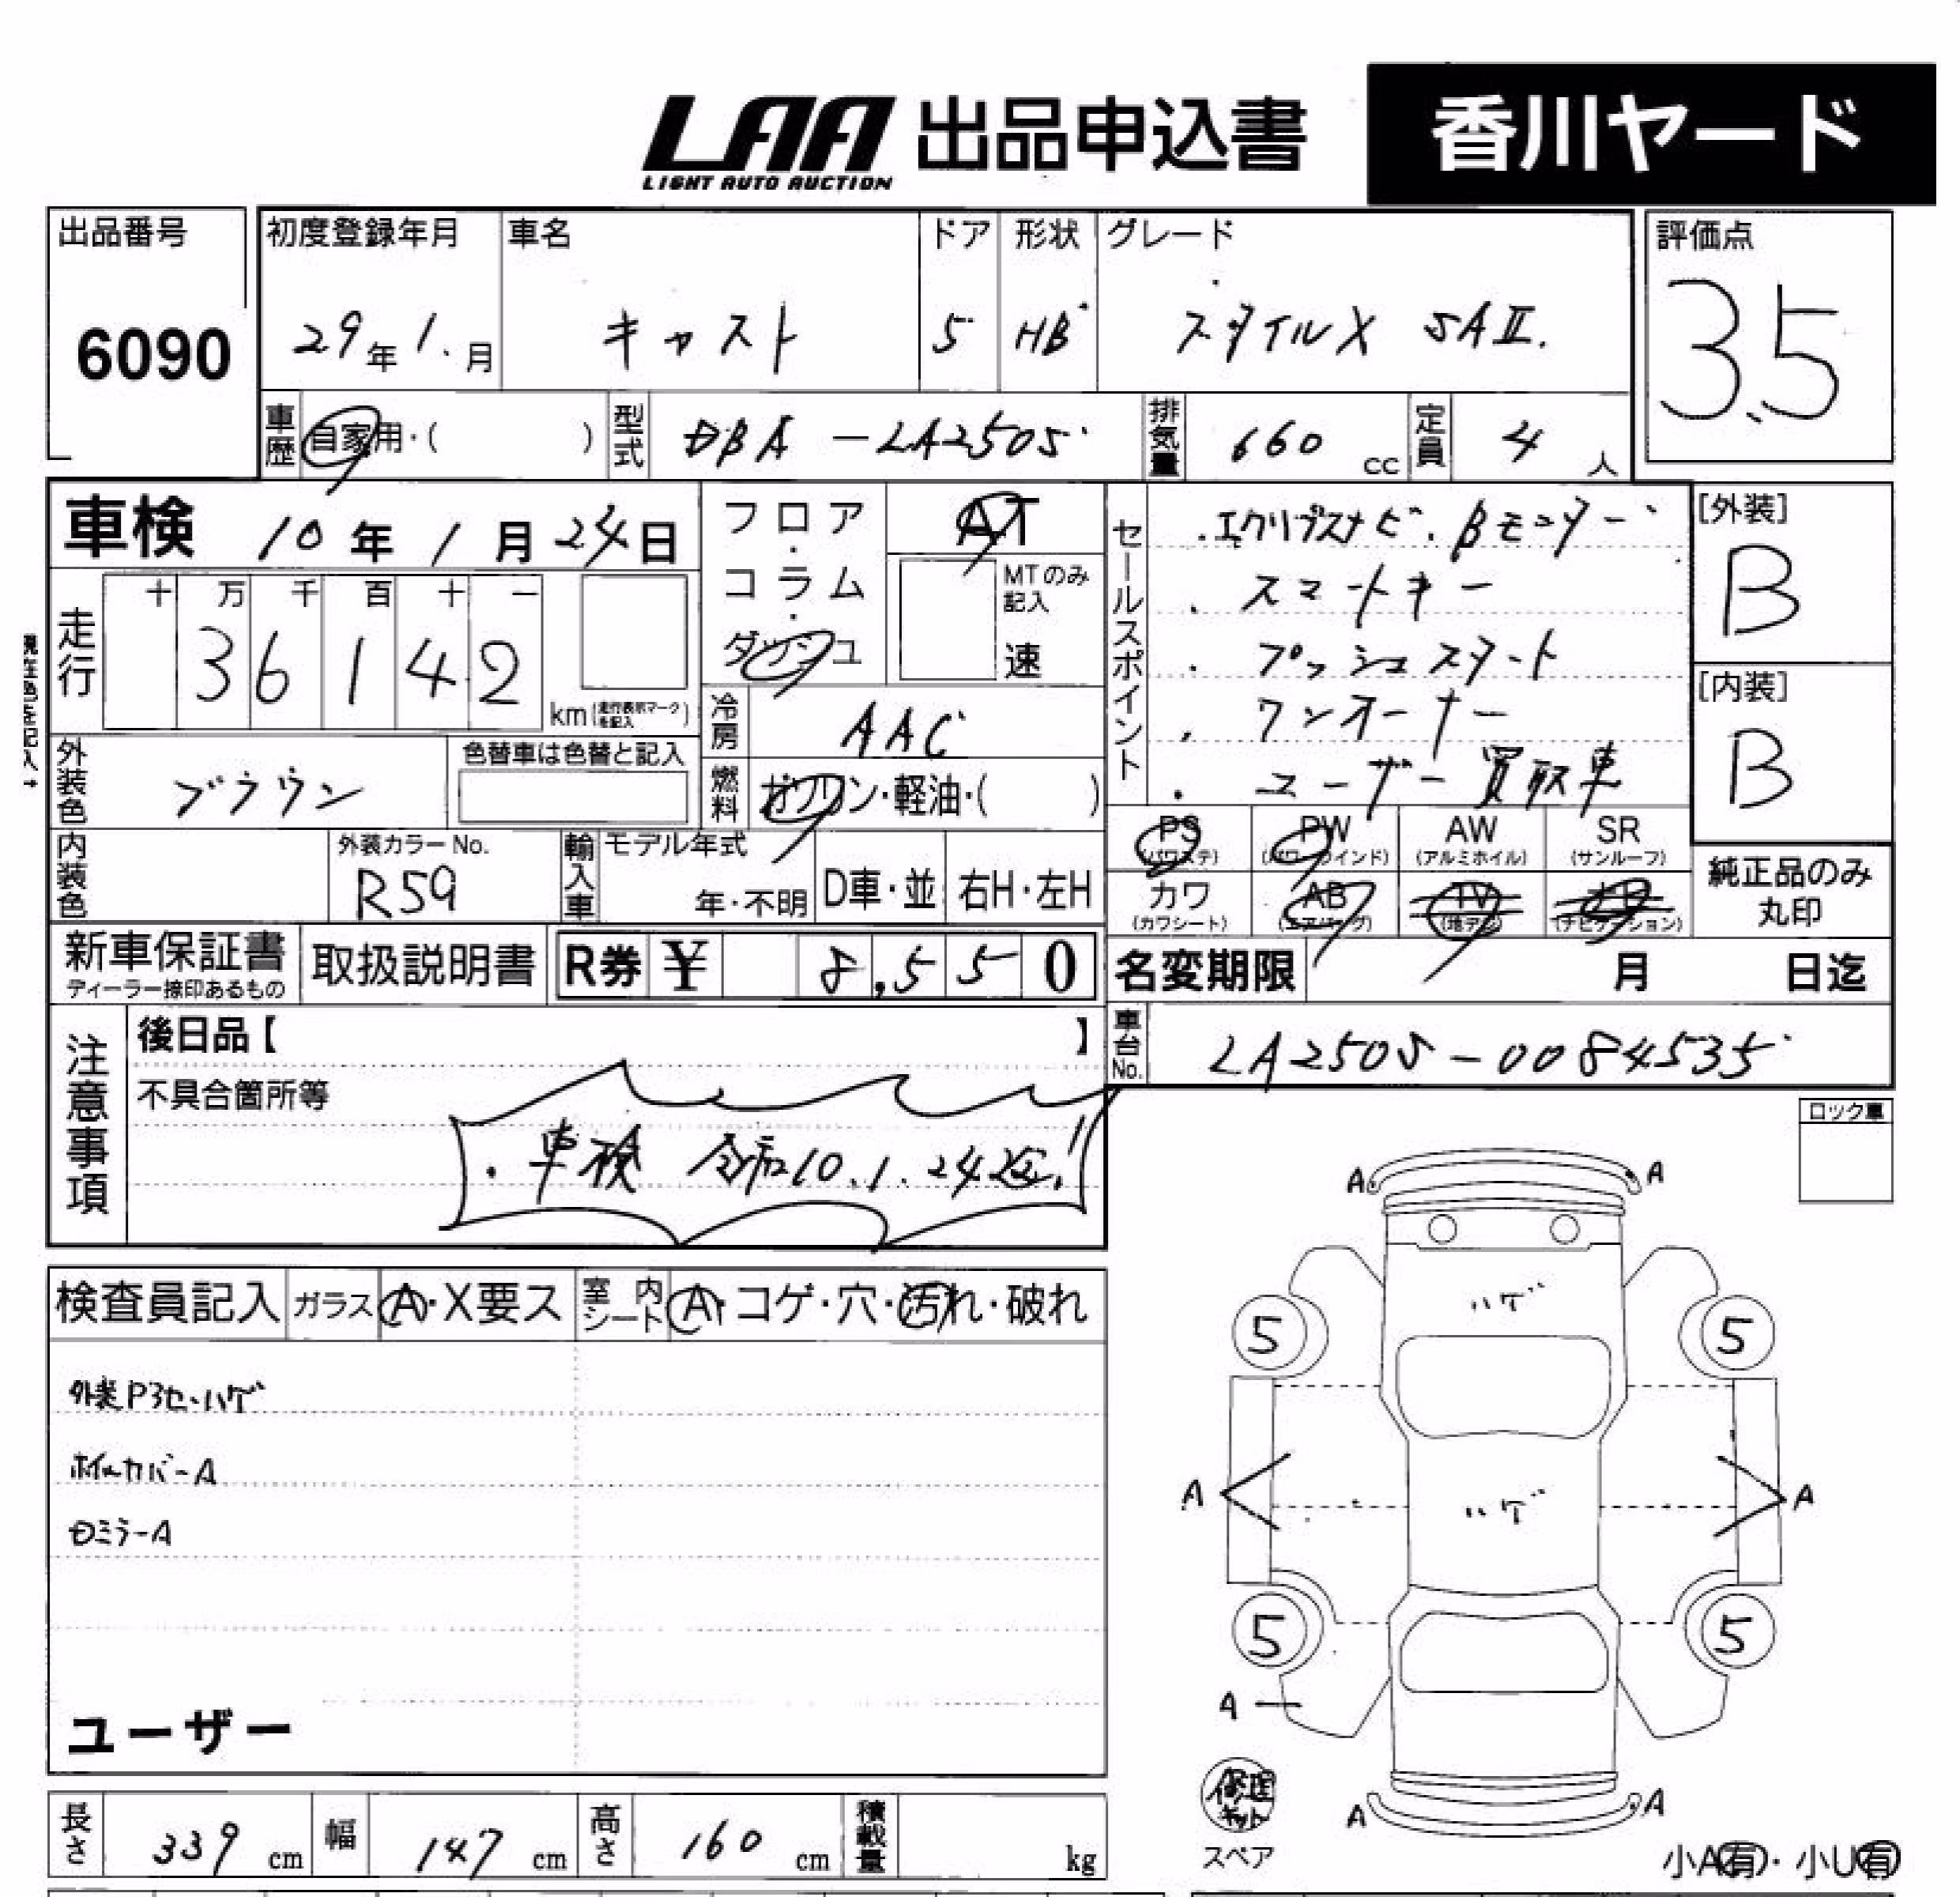 LAA 出品申込書 香川ヤード
LIGHT AUTO AUCTION
出品番号 初度登録年月 車名 ドア 形状 グレード 評価点
6090 29年1月 キャスト 5 HB スタイルX SAⅡ. 3.5
車歴 自家用・( ) 型式 DBA-LA250S 排気量 660 cc 定員 4 人
車検 10年1月24日
フロア・コラム・ダッシュ
AT
MTのみ記入
速
セールスポイント
・エクリプスナビ・Bモニター
・スマートキー
・プッシュスタート
・ワンオーナー
・ユーザー買取車
[外装]
B
[内装]
B
走行 十 万 千 百 十 一
36142
km (走行表示マークを記入)
冷房 AAC
外装色 ブラウン
色替車は色替と記入
燃料 ガソリン・軽油・( )
内装色
外装カラーNo.
R59
輸入車 モデル年式
年・不明 D車・並 右H・左H
PS (パワステ) PW (パワーウインド) AW (アルミホイル) SR (サンルーフ)
カワ (カワシート) AB (エアバッグ) TV (地デジ) (ナビゲーション)
純正品のみ
丸印
新車保証書
ディーラー捺印あるもの
取扱説明書 R券 ¥ 8,550
名変期限 月 日迄
注意事項
後日品【 】
不具合箇所等
・車検 令和10.1.24迄!!
車台No. LA250S-0084535
ロック車
検査員記入 ガラス A・X要ス 室内シート A・コゲ・穴・汚れ・破れ
外装P3セ・ハゲ
ホイールカバーA
ミラーA
ユーザー
A A
ハゲ
5 5
A ハゲ A
5 5
A
修理キット
スペア
A A
小A有・小U有
長さ 339 cm 幅 147 cm 高さ 160 cm 積載量 kg